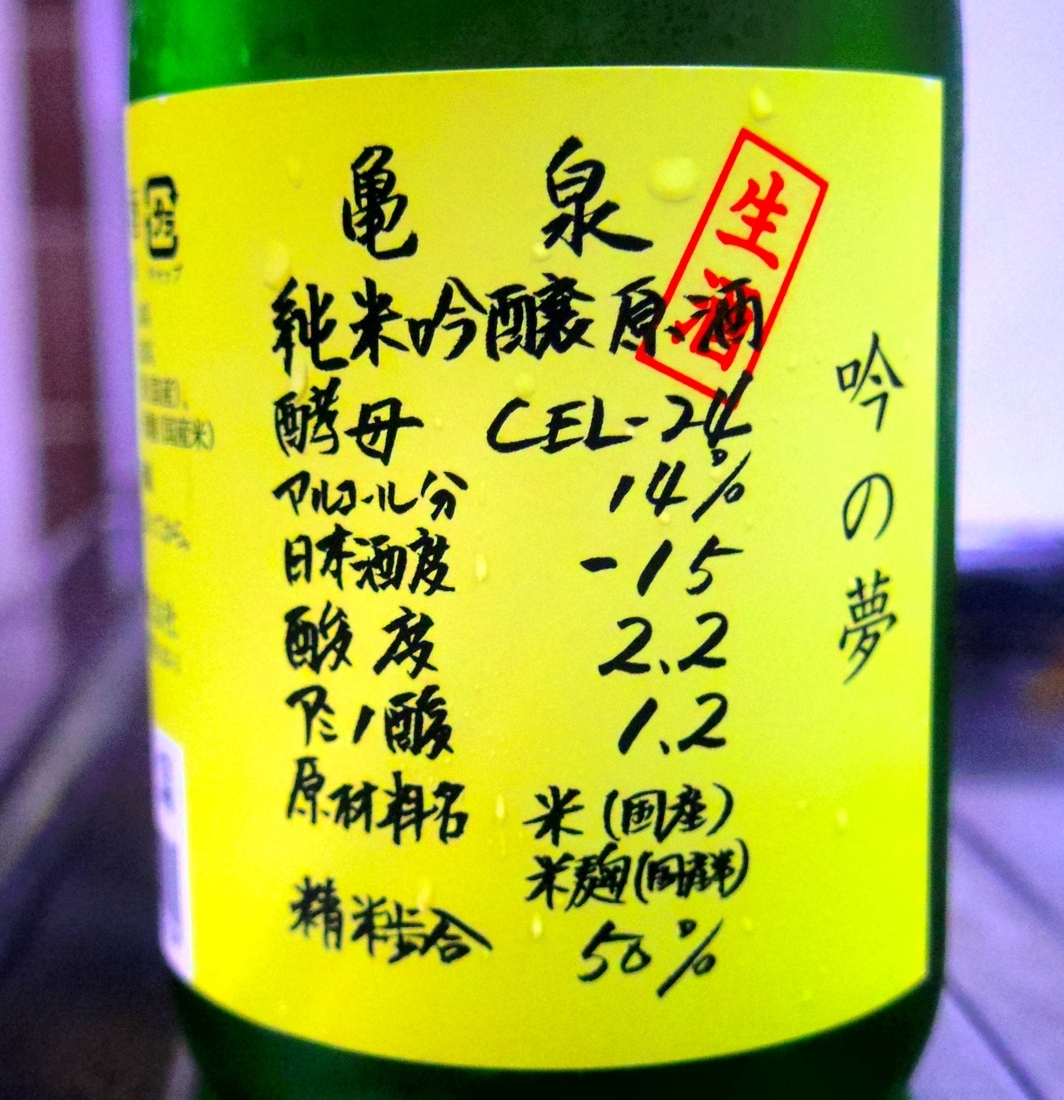 亀泉
生酒
純米吟醸原酒
酵母 CEL-24
アルコール分 14%
日本酒度 -15
酸度 2.2
アミノ酸 1.2
原材料名 米(国産)
米麹(国産米)
精米歩合 50%
吟の夢
国産)、
国産米)